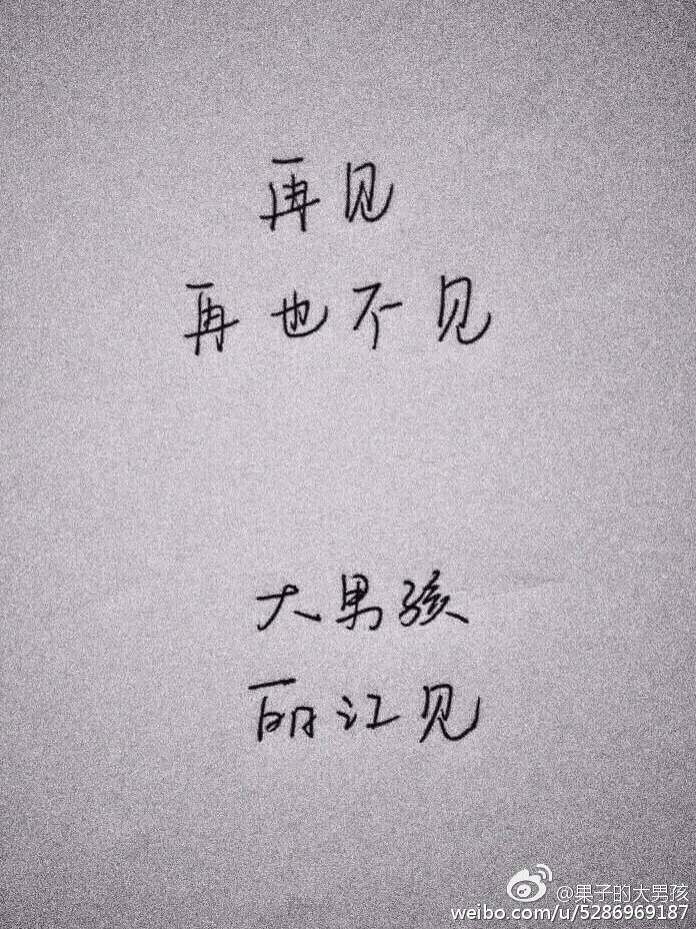 再见
再也不见
大男孩
丽江见
@果子的大男孩
weibo.com/u/5286969187